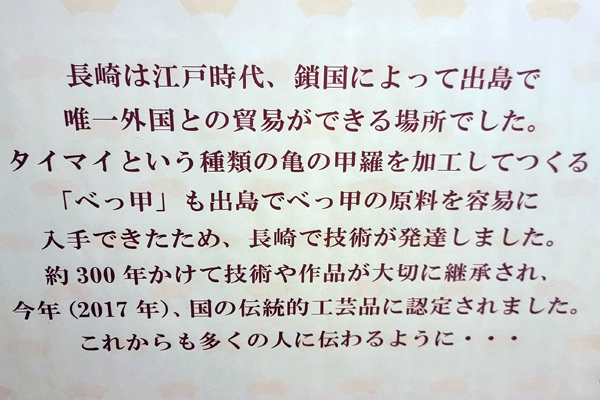 長崎は江戸時代、鎖国によって出島で
唯一外国との貿易ができる場所でした。
タイマイという種類の亀の甲羅を加工してつくる
「べっ甲」も出島でべっ甲の原料を容易に
入手できたため、長崎で技術が発達しました。
約300年かけて技術や作品が大切に継承され、
今年（2017年）、国の伝統的工芸品に認定されました。
これからも多くの人に伝わるように・・・